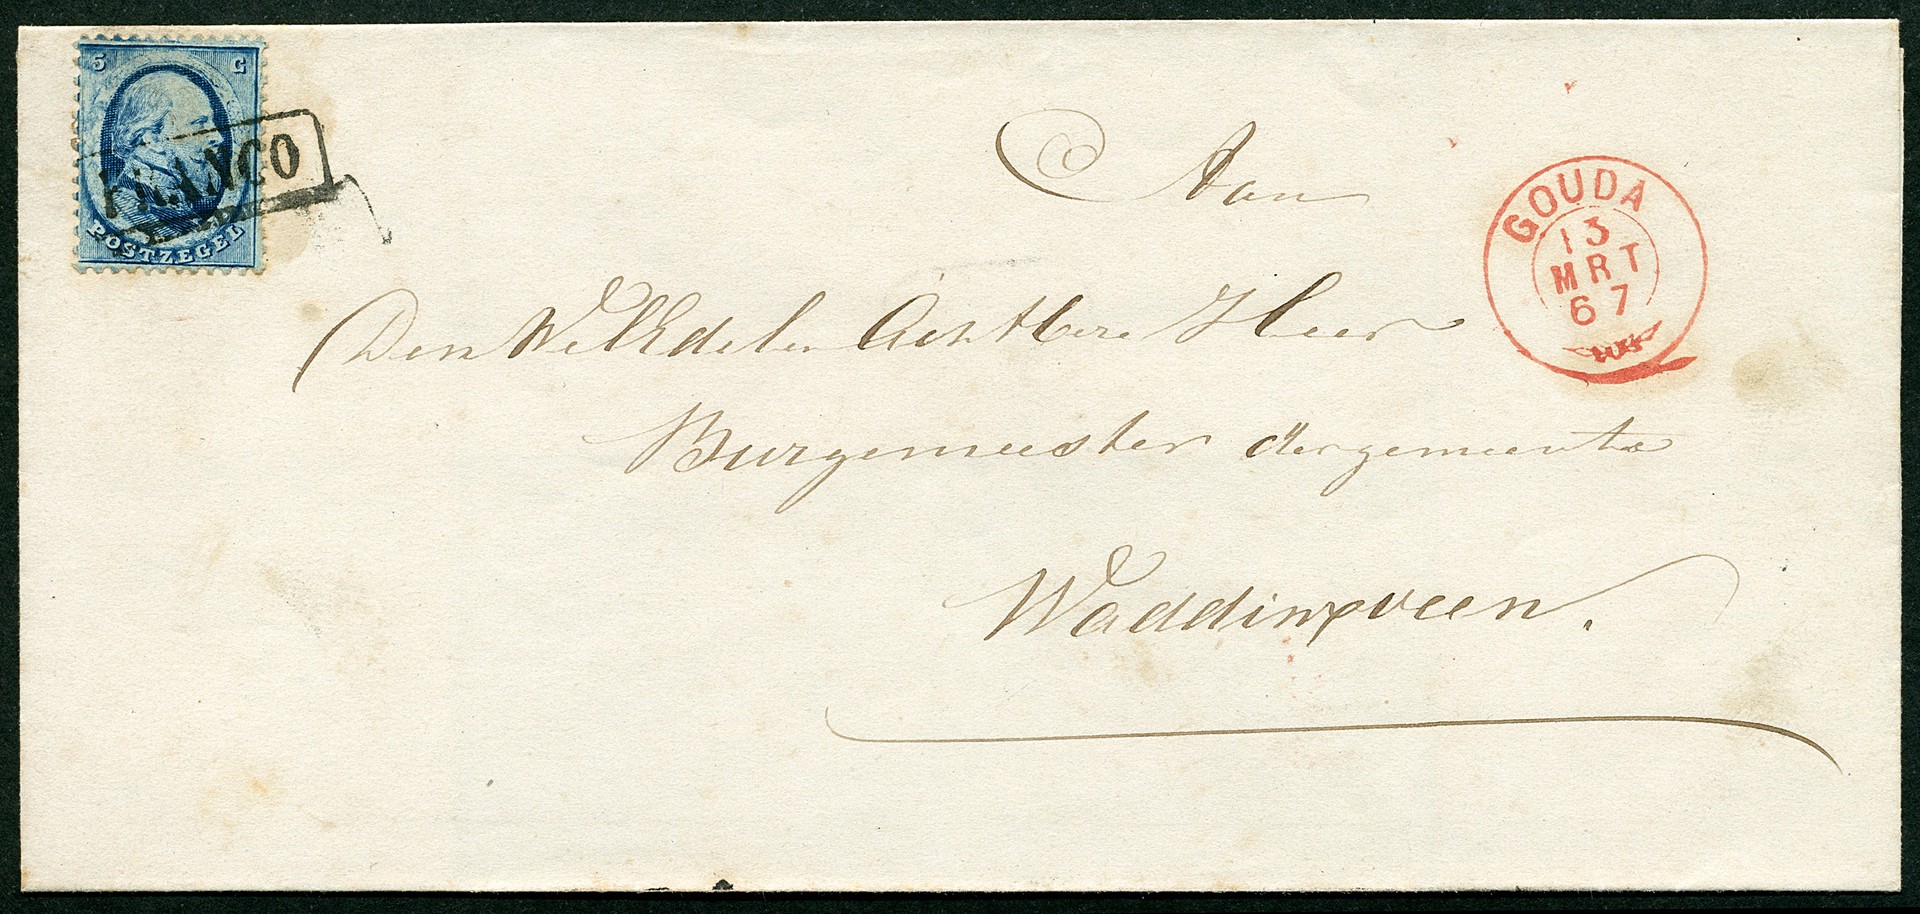 5 C
FRANCO
POSTZEGEL
GOUDA
13
MRT
67
Aan
Den WelEdelen Achtbere Heer
Burgemeester der gemeente
Waddinxveen.